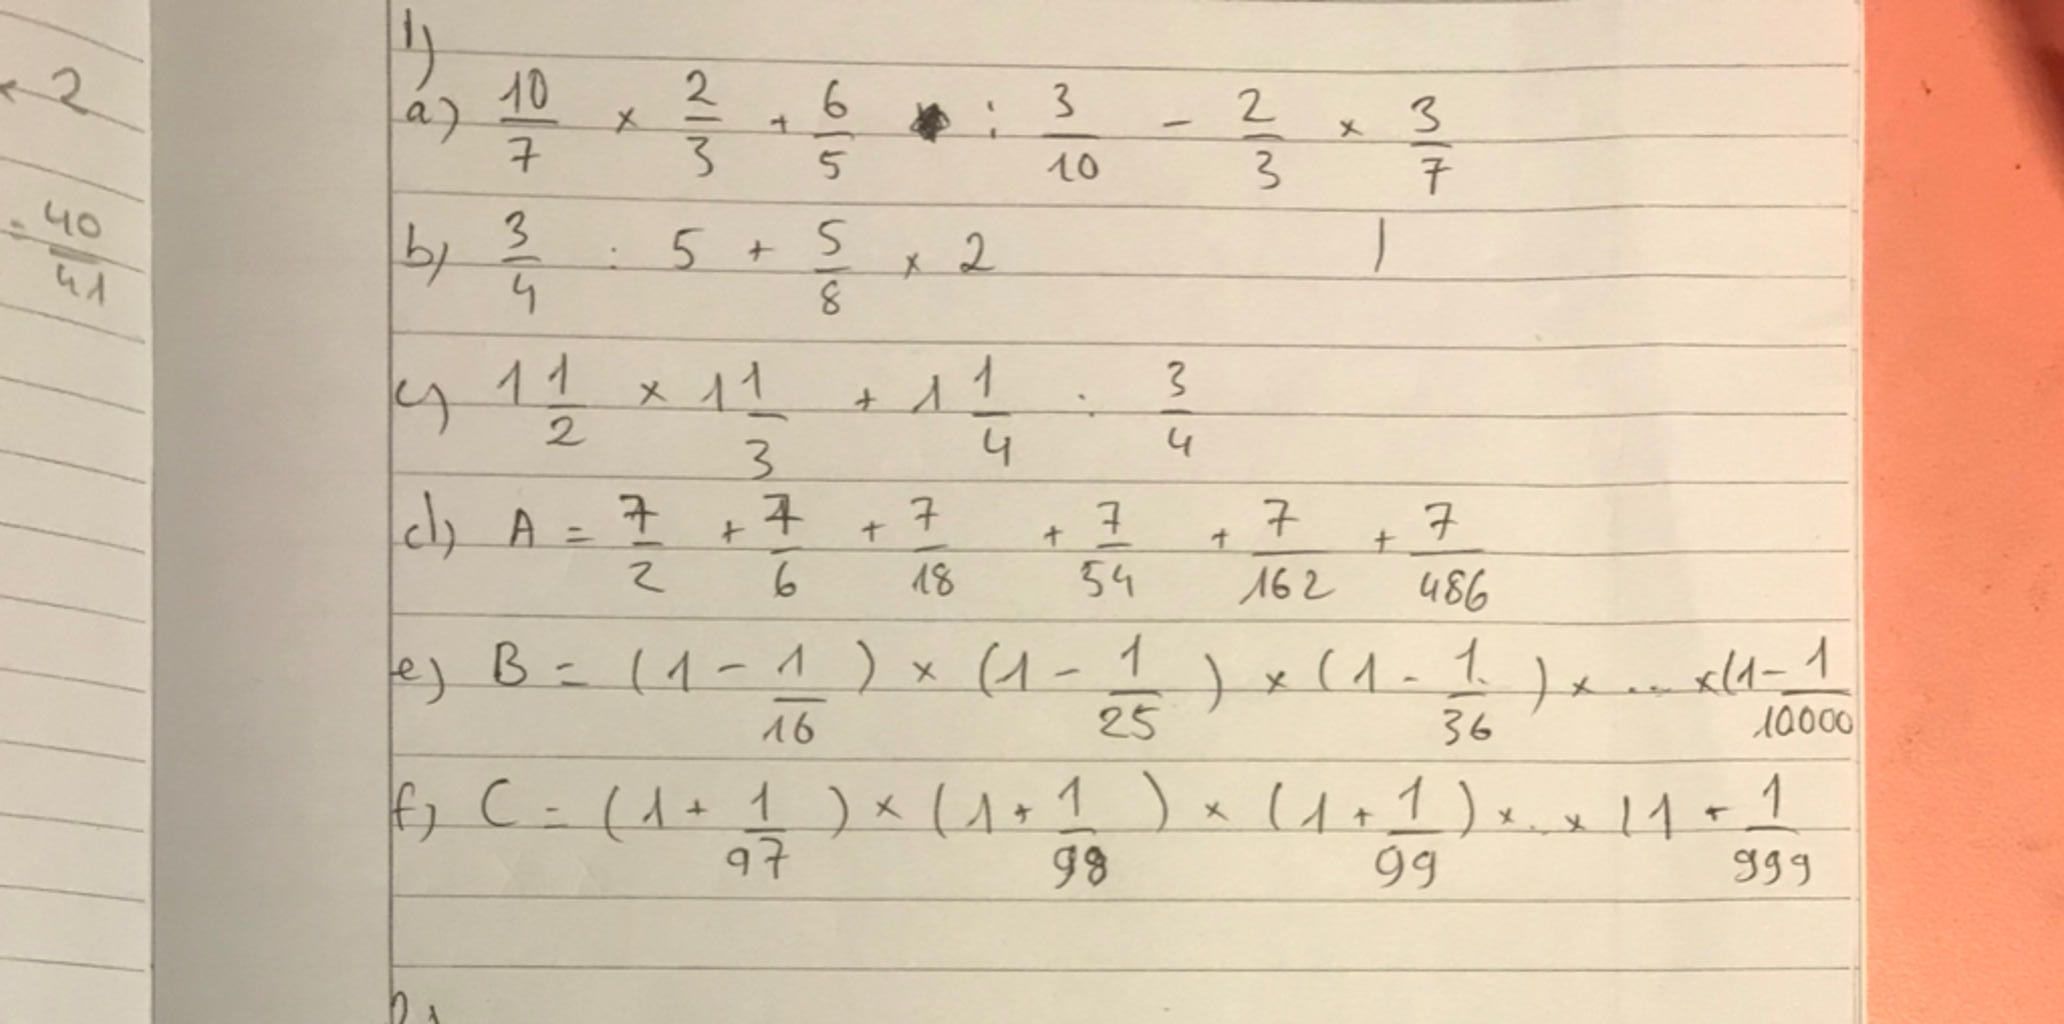 1)
a) 10/7 × 2/3 + 6/5 : 3/10 - 2/3 × 3/7
b) 3/4 : 5 + 5/8 × 2
c) 1 1/2 × 1 1/3 + 1 1/4 : 3/4
d) A = 7/2 + 7/6 + 7/18 + 7/54 + 7/162 + 7/486
e) B = (1 - 1/16) × (1 - 1/25) × (1 - 1/36) × ... × (1 - 1/10000
f) C = (1 + 1/97) × (1 + 1/98) × (1 + 1/99) × .. × (1 + 1/999
2
= 40/41